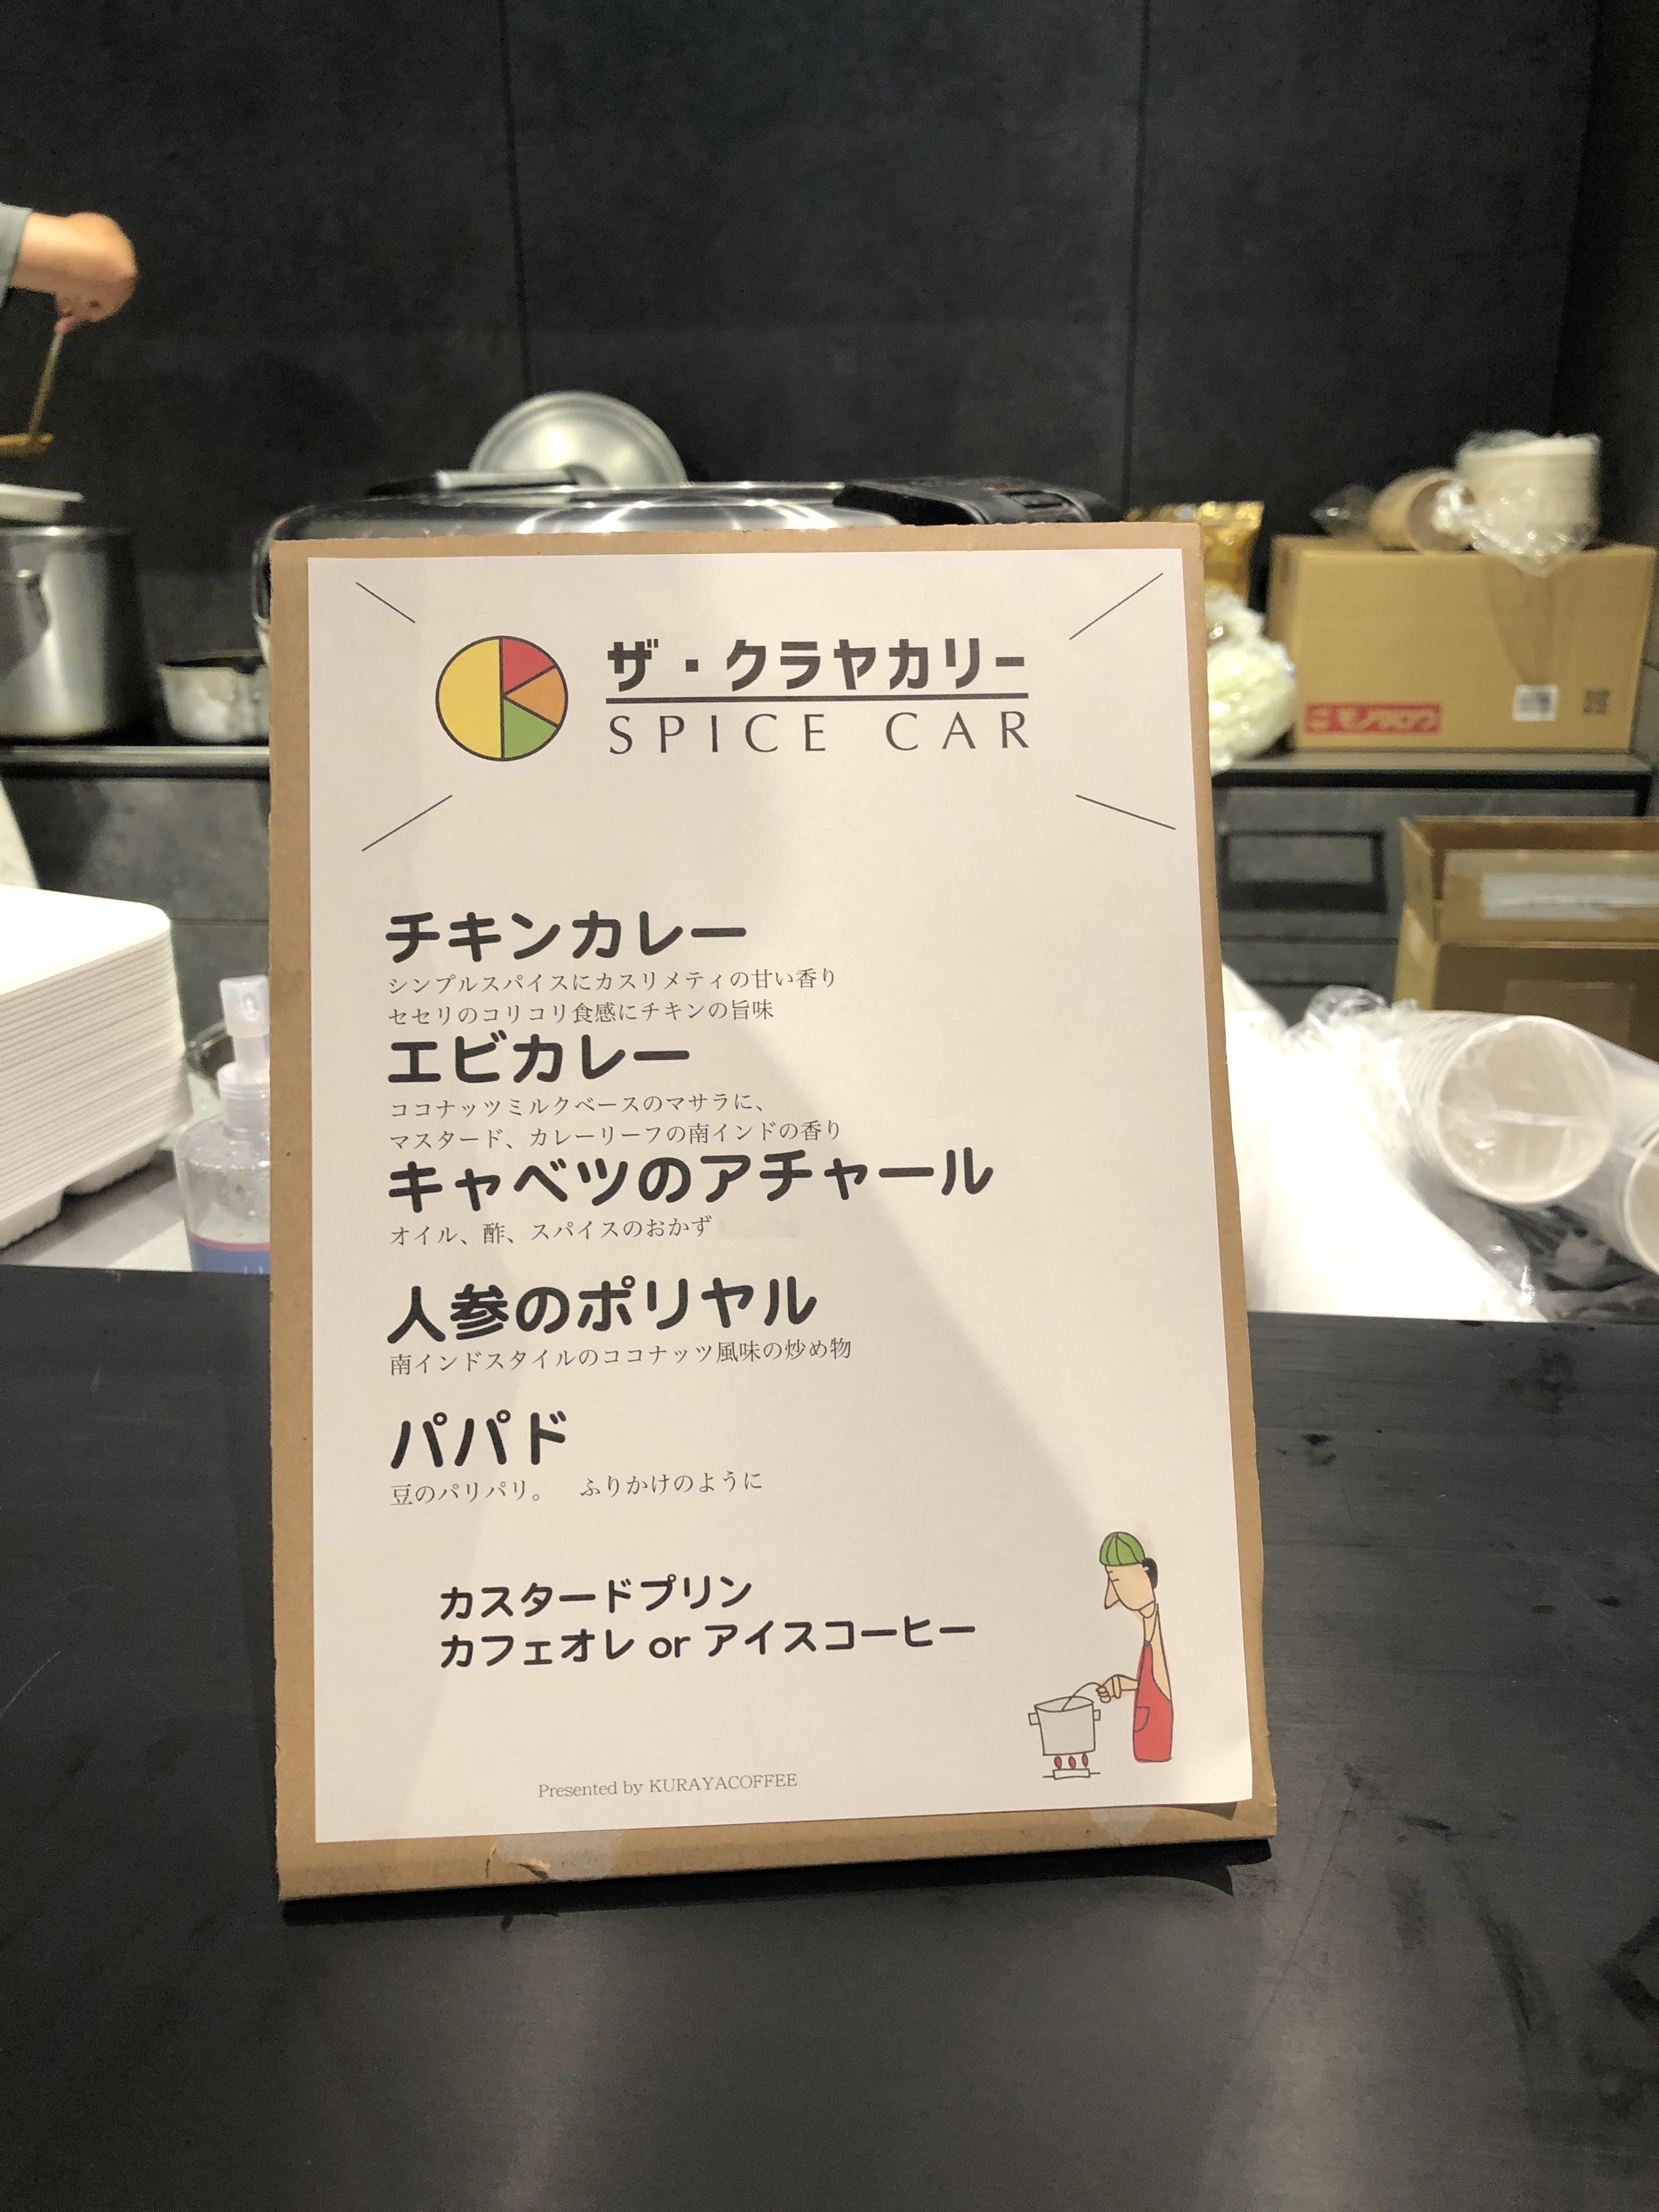 ザ・クラヤカリー
SPICE CAR
チキンカレー
シンプルスパイスにカスリメティの甘い香り
セセリのコリコリ食感にチキンの旨味
エビカレー
ココナッツミルクベースのマサラに、
マスタード、カレーリーフの南インドの香り
キャベツのアチャール
オイル、酢、スパイスのおかず
人参のポリヤル
南インドスタイルのココナッツ風味の炒め物
パパド
豆のパリパリ。　ふりかけのように
カスタードプリン
カフェオレ or アイスコーヒー
Presented by KURAYACOFFEE
モノタロウ